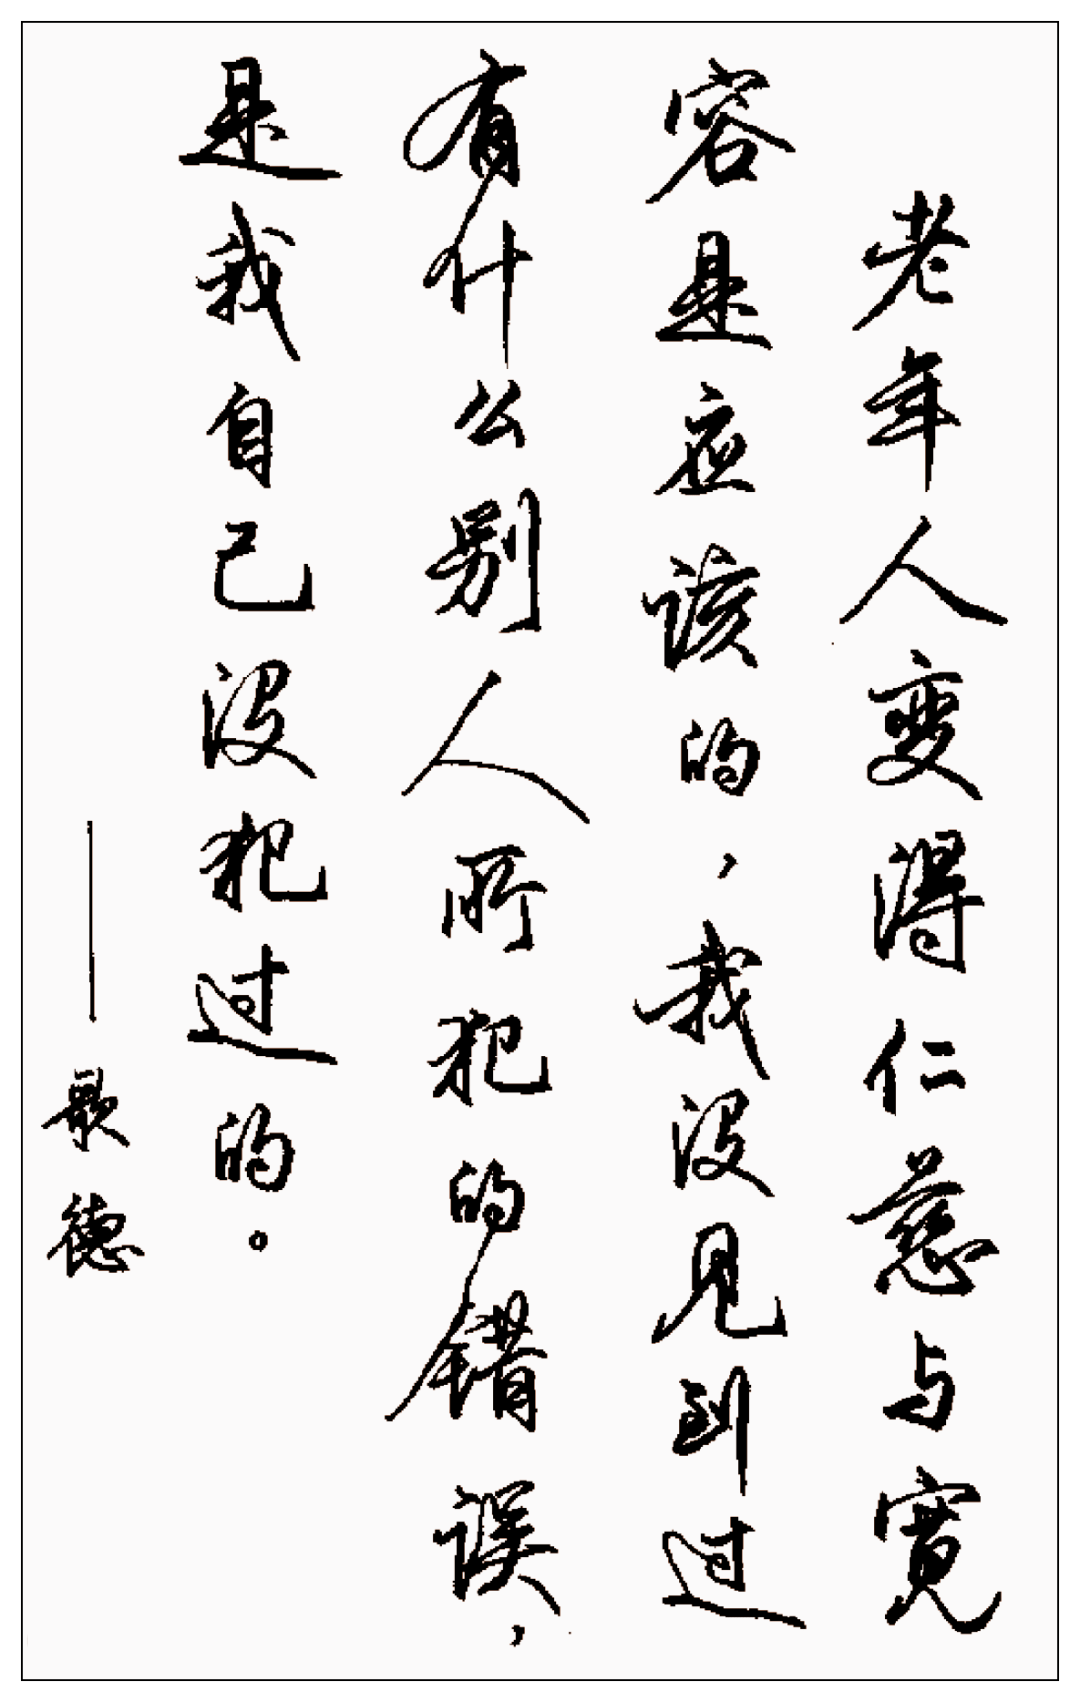 老年人变得仁慈与宽
容是应该的，我没见到过
有什么别人所犯的错误，
是我自己没犯过的。
——歌德